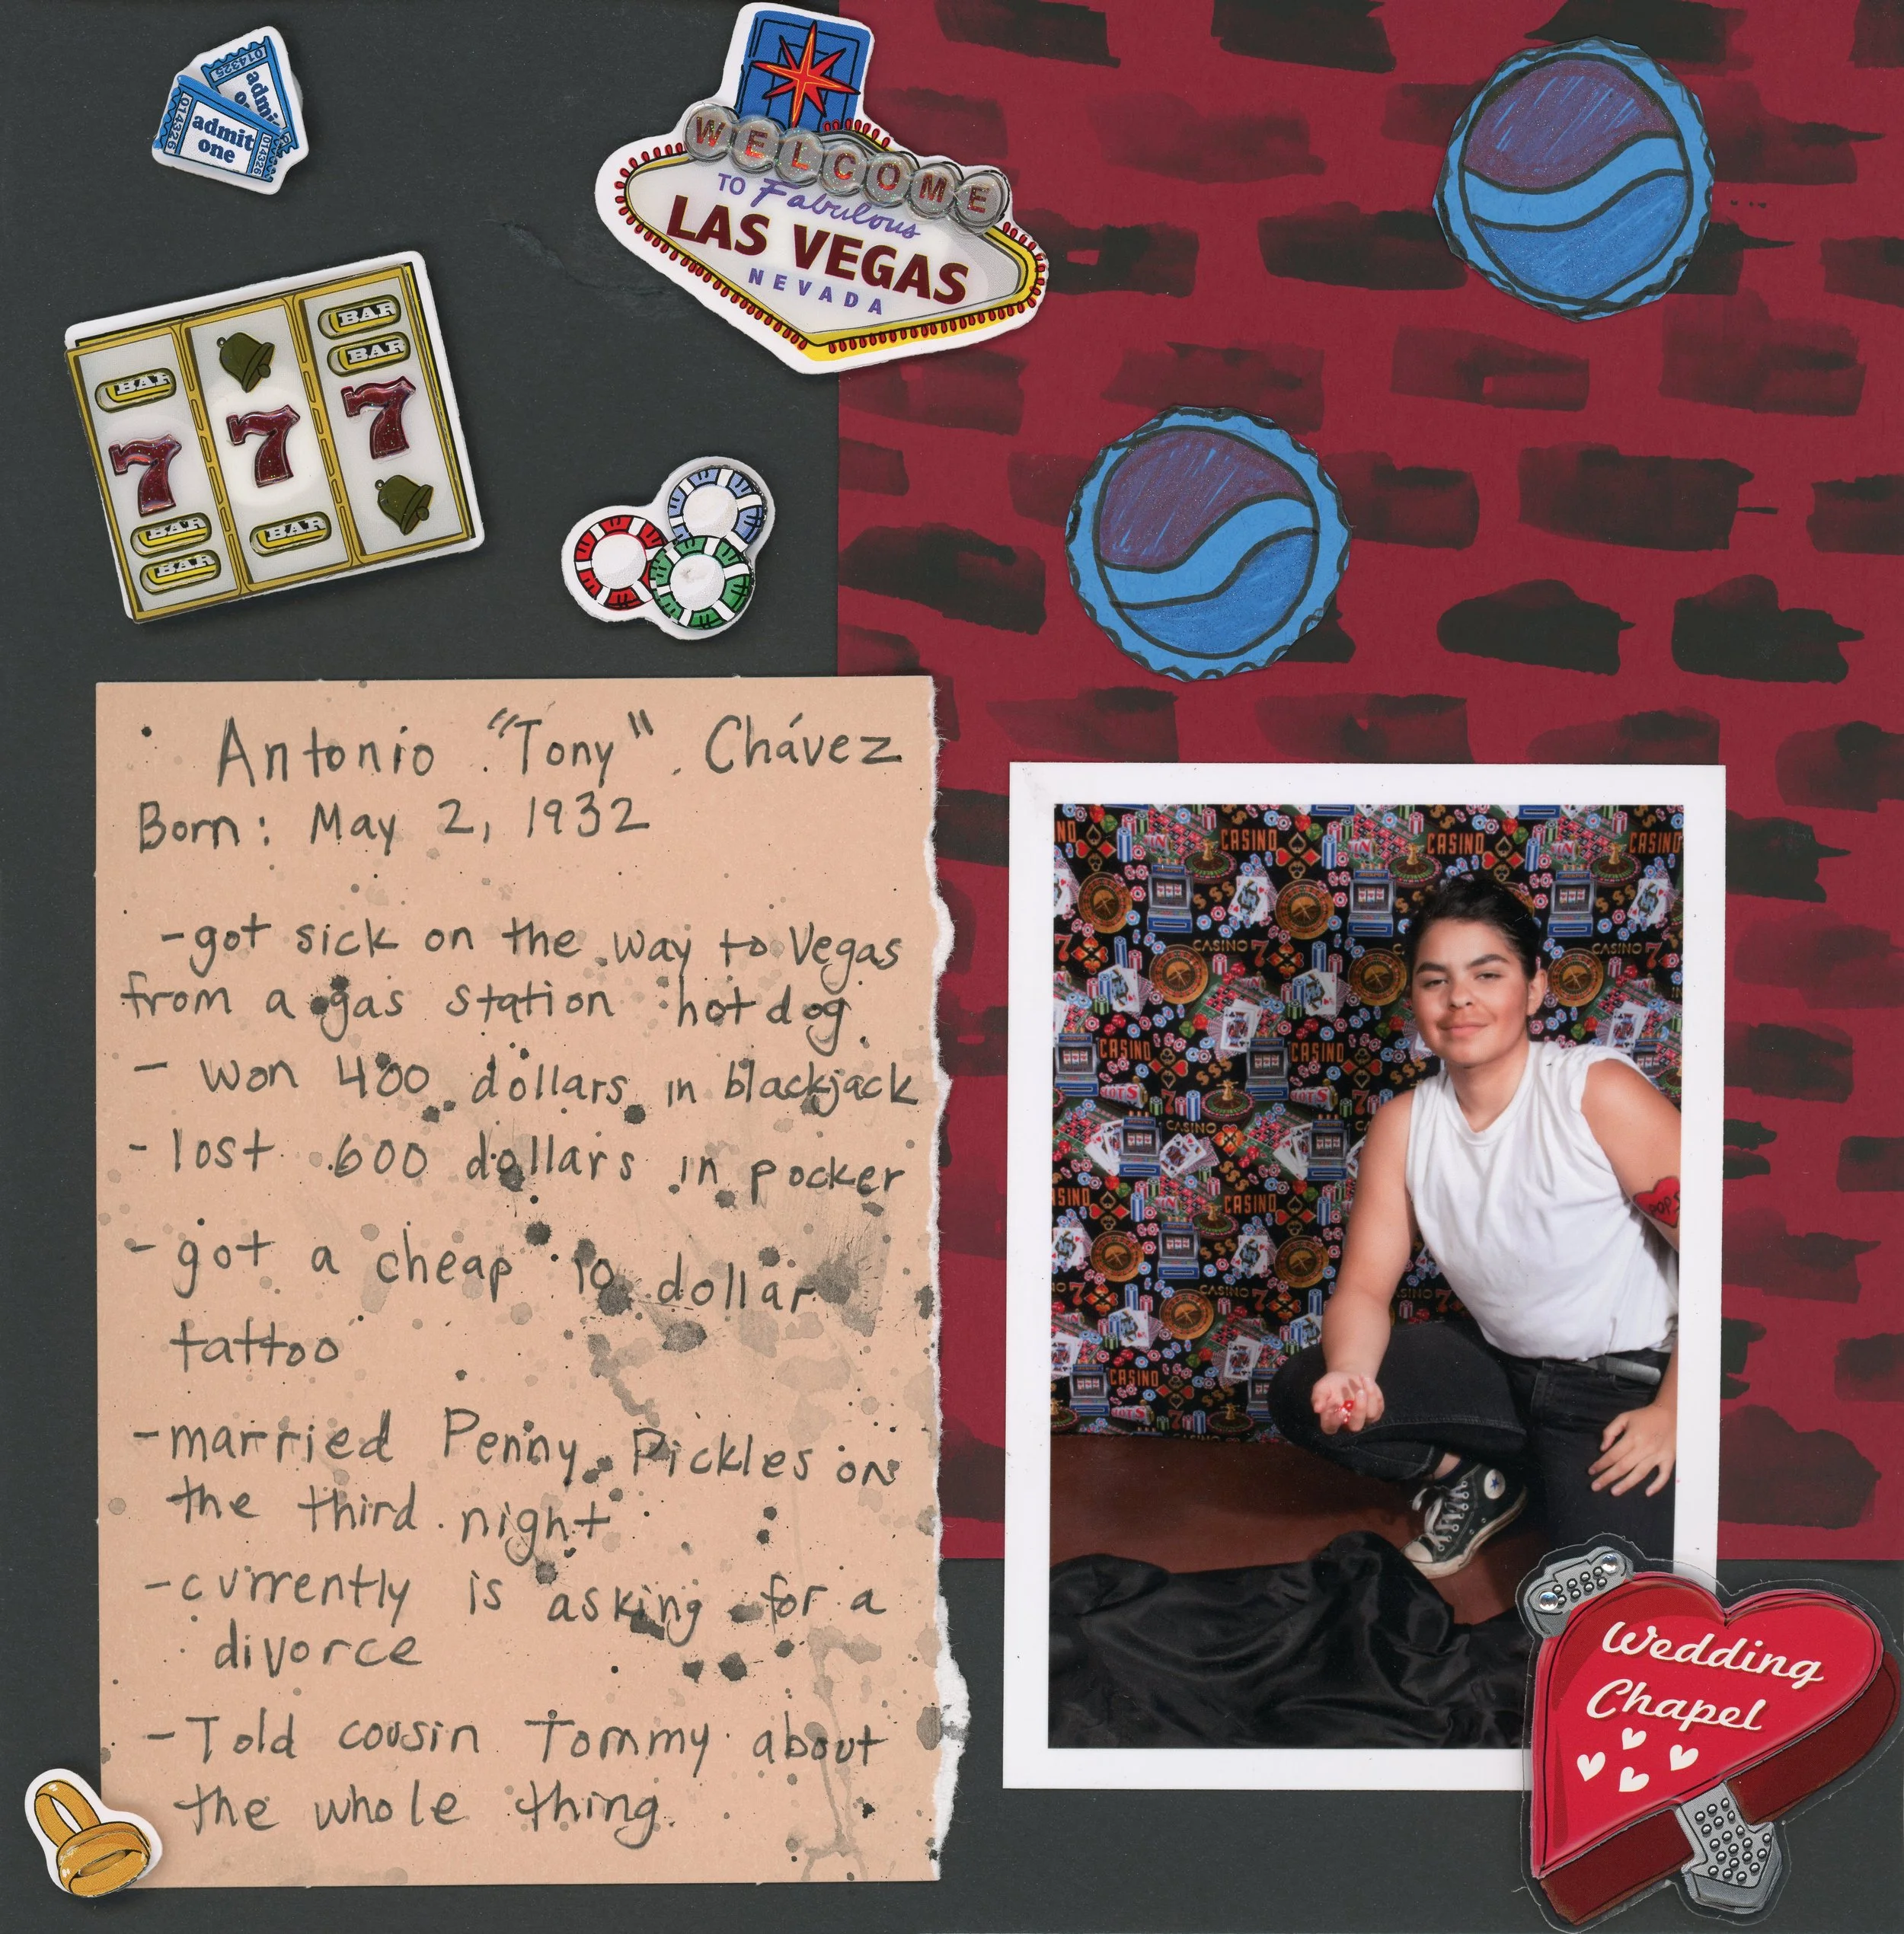 admit
one
014326
014326
014325
WELCOME
TO Fabulous
LAS VEGAS
NEVADA
BAR
BAR
BAR
7
7
7
BAR
BAR
BAR
Antonio "Tony" Chávez
Born: May 2, 1932
-got sick on the way to Vegas
from a gas station hotdog
- won 400 dollars in blackjack
- lost 600 dollars in pocker
- got a cheap 10 dollar
tattoo
-married Penny Pickles on
the third night
-currently is asking for a
divorce
-Told cousin Tommy about
the whole thing.
CASINO
CASINO
CASINO
CASINO
CASINO
CASINO
CASINO
CASINO
CASINO
CASINO
POPS
Wedding
Chapel